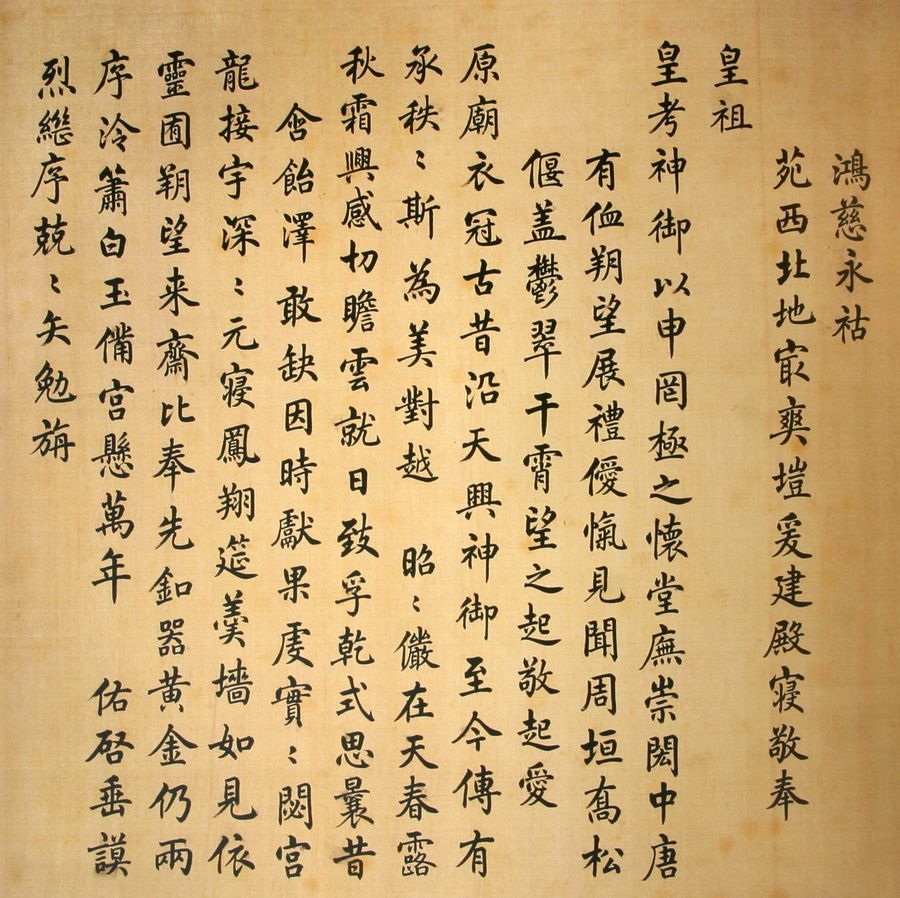 鴻慈永祜
苑西北地㝡爽塏爰建殿寢敬奉
皇祖
皇考神御以申罔極之懷堂廡崇閎中唐
有侐朔望展禮僾愾見聞周垣喬松
偃盖鬱翠干霄望之起敬起愛
原廟衣冠古昔沿天興神御至今傳有
承秩〻斯為美對越 昭〻儼在天春露
秋霜興感切瞻雲就日致孚乾式思曩昔
含飴澤敢缺因時獻果虔實〻閟宮
龍接宇深〻元寢鳳翔筵羹墻如見依
靈囿朔望来齋比奉先釦器黃金仍兩
序泠簫白玉備宮懸萬年 佑啓垂謨
烈繼序兢〻矢勉旃